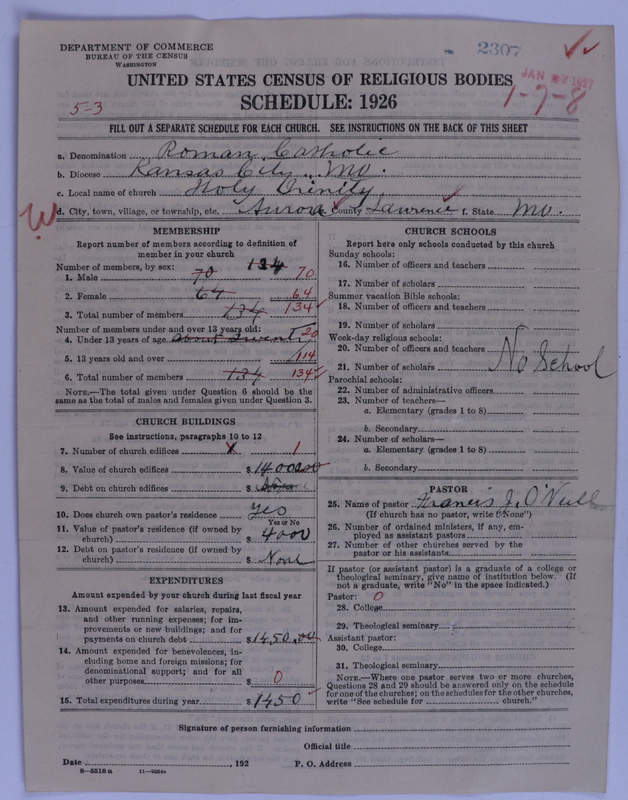 DEPARTMENT OF COMMERCE
BUREAU OF THE CENSUS
WASHINGTON
2307
UNITED STATES CENSUS OF RELIGIOUS BODIES
SCHEDULE: 1926
5-3
1-7-8
FILL OUT A SEPARATE SCHEDULE FOR EACH CHURCH. SEE INSTRUCTIONS ON THE BACK OF THIS SHEET
a. Denomination Roman Catholic
b. Diocese Kansas City, Mo.
c. Local name of church Holy Trinity
d. City, town, village, or township, etc. Aurora County Lawrence f. State Mo.
MEMBERSHIP
Report number of members according to definition of
member in your church
Number of members, by sex: 134
1. Male 70 70
2. Female 64 64
3. Total number of members 134 134
Number of members under and over 13 years old:
4. Under 13 years of age about twenty 20
5. 13 years old and over 114
6. Total number of members 134 134
NOTE.—The total given under Question 6 should be
same as the total of males and females given under Question 3.
CHURCH BUILDINGS
See instructions, paragraphs 10 to 12
7. Number of church edifices 1
8. Value of church edifices $14000
9. Debt on church edifices $
10. Does church own pastor's residence? yes
Yes or No
11. Value of pastor's residence (if owned by
church) $4000
12. Debt on pastor's residence (if owned by
church) $None
EXPENDITURES
Amount expended by your church during last fiscal year
13. Amount expended for salaries, repairs,
and other running expenses; for im-
provements or new buildings; and for
payments on church debt $1450.00
14. Amount expended for benevolences, in-
cluding home and foreign missions; for
denominational support; and for all
other purposes $0
15. Total expenditures during year $1450
CHURCH SCHOOLS
Report here only schools conducted by this church
Sunday schools:
16. Number of officers and teachers
17. Number of scholars
Summer vacation Bible schools:
18. Number of officers and teachers
19. Number of scholars
Week-day religious schools:
20. Number of officers and teachers
21. Number of scholars No School
Parochial schools:
22. Number of administrative officers
23. Number of teachers—
a. Elementary (grades 1 to 8)
b. Secondary
24. Number of scholars—
a. Elementary (grades 1 to 8)
b. Secondary
PASTOR
25. Name of pastor Francis J. O'Neill
(If church has no pastor, write "None")
26. Number of ordained ministers, if any, em-
ployed as assistant pastors
27. Number of other churches served by the
pastor or his assistants
If pastor (or assistant pastor) is a graduate of a college or
theological seminary, give name of institution below. (If
not a graduate, write "No" in the space indicated.)
Pastor: 0
28. College
29. Theological seminary
Assistant pastor:
30. College
31. Theological seminary
NOTE.—Where one pastor serves two or more churches,
Questions 28 and 29 should be answered only on the schedule
for one of the churches; on the schedules for the other churches,
write "See schedule for church."
Signature of person furnishing information
Official title
Date , 192 P. O. Address
8-5518a